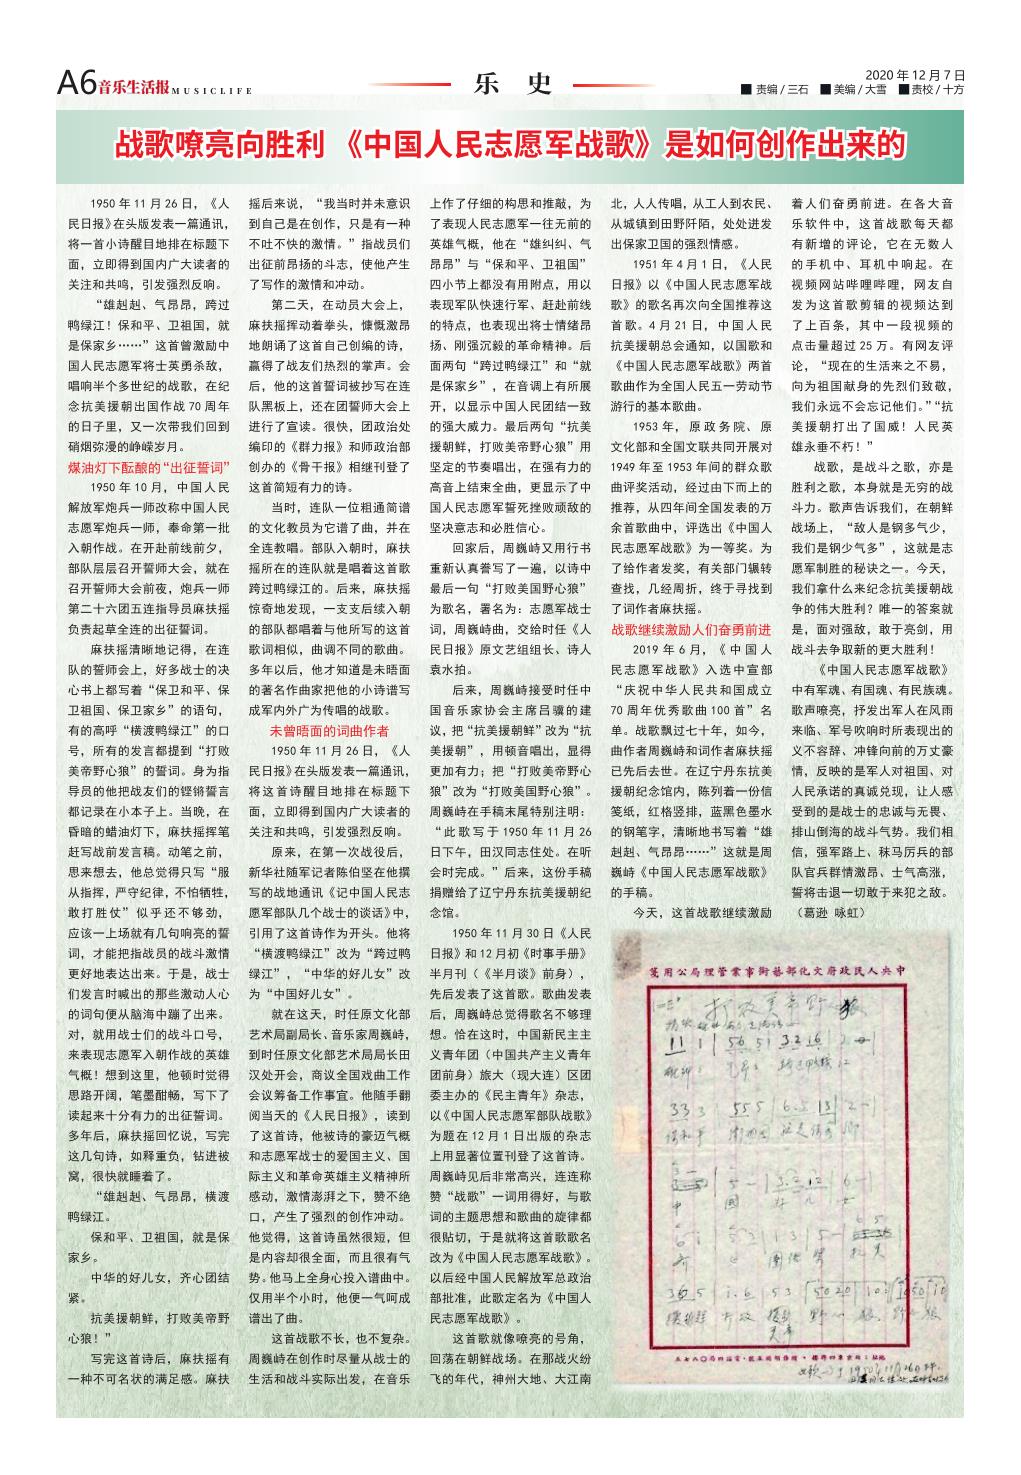 A6音乐生活报MUSICLIFE
乐 史
2020年12月7日
■ 责编/三石 ■美编/大雪 ■责校/十方
战歌嘹亮向胜利 《中国人民志愿军战歌》是如何创作出来的
1950年11月26日，《人
民日报》在头版发表一篇通讯，
将一首小诗醒目地排在标题下
面，立即得到国内广大读者的
关注和共鸣，引发强烈反响。
“雄赳赳、气昂昂，跨过
鸭绿江！保和平、卫祖国，就
是保家乡……”这首曾激励中
国人民志愿军将士英勇杀敌，
唱响半个多世纪的战歌，在纪
念抗美援朝出国作战70周年
的日子里，又一次带我们回到
硝烟弥漫的峥嵘岁月。
煤油灯下酝酿的“出征誓词”
1950年10月，中国人民
解放军炮兵一师改称中国人民
志愿军炮兵一师，奉命第一批
入朝作战。在开赴前线前夕，
部队层层召开誓师大会，就在
召开誓师大会前夜，炮兵一师
第二十六团五连指导员麻扶摇
负责起草全连的出征誓词。
麻扶摇清晰地记得，在连
队的誓师会上，好多战士的决
心书上都写着“保卫和平、保
卫祖国、保卫家乡”的语句，
有的高呼“横渡鸭绿江”的口
号，所有的发言都提到“打败
美帝野心狼”的誓词。身为指
导员的他把战友们的铿锵誓言
都记录在小本子上。当晚，在
昏暗的蜡油灯下，麻扶摇挥笔
赶写战前发言稿。动笔之前，
思来想去，他总觉得只写“服
从指挥，严守纪律，不怕牺牲，
敢打胜仗”似乎还不够劲，
应该一上场就有几句响亮的誓
词，才能把指战员的战斗激情
更好地表达出来。于是，战士
们发言时喊出的那些激动人心
的词句便从脑海中蹦了出来。
对，就用战士们的战斗口号，
来表现志愿军入朝作战的英雄
气概！想到这里，他顿时觉得
思路开阔，笔墨酣畅，写下了
读起来十分有力的出征誓词。
多年后，麻扶摇回忆说，写完
这几句诗，如释重负，钻进被
窝，很快就睡着了。
“雄赳赳、气昂昂，横渡
鸭绿江。
保和平、卫祖国，就是保
家乡。
中华的好儿女，齐心团结
紧。
抗美援朝鲜，打败美帝野
心狼！”
写完这首诗后，麻扶摇有
一种不可名状的满足感。麻扶
摇后来说，“我当时并未意识
到自己是在创作，只是有一种
不吐不快的激情。”指战员们
出征前昂扬的斗志，使他产生
了写作的激情和冲动。
第二天，在动员大会上，
麻扶摇挥动着拳头，慷慨激昂
地朗诵了这首自己创编的诗，
赢得了战友们热烈的掌声。会
后，他的这首誓词被抄写在连
队黑板上，还在团誓师大会上
进行了宣读。很快，团政治处
编印的《群力报》和师政治部
创办的《骨干报》相继刊登了
这首简短有力的诗。
当时，连队一位粗通简谱
的文化教员为它谱了曲，并在
全连教唱。部队入朝时，麻扶
摇所在的连队就是唱着这首歌
跨过鸭绿江的。后来，麻扶摇
惊奇地发现，一支支后续入朝
的部队都唱着与他所写的这首
歌词相似，曲调不同的歌曲。
多年以后，他才知道是未晤面
的著名作曲家把他的小诗谱写
成军内外广为传唱的战歌。
未曾晤面的词曲作者
1950年11月26日，《人
民日报》在头版发表一篇通讯，
将这首诗醒目地排在标题下
面，立即得到国内广大读者的
关注和共鸣，引发强烈反响。
原来，在第一次战役后，
新华社随军记者陈伯坚在他撰
写的战地通讯《记中国人民志
愿军部队几个战士的谈话》中，
引用了这首诗作为开头。他将
“横渡鸭绿江”改为“跨过鸭
绿江”，“中华的好儿女”改
为“中国好儿女”。
就在这天，时任原文化部
艺术局副局长、音乐家周巍峙，
到时任原文化部艺术局局长田
汉处开会，商议全国戏曲工作
会议筹备工作事宜。他随手翻
阅当天的《人民日报》，读到
了这首诗，他被诗的豪迈气概
和志愿军战士的爱国主义、国
际主义和革命英雄主义精神所
感动，激情澎湃之下，赞不绝
口，产生了强烈的创作冲动。
他觉得，这首诗虽然很短，但
是内容却很全面，而且很有气
势。他马上全身心投入谱曲中。
仅用半个小时，他便一气呵成
谱出了曲。
这首战歌不长，也不复杂。
周巍峙在创作时尽量从战士的
生活和战斗实际出发，在音乐
上作了仔细的构思和推敲，为
了表现人民志愿军一往无前的
英雄气概，他在“雄纠纠、气
昂昂”与“保和平、卫祖国”
四小节上都没有用附点，用以
表现军队快速行军、赶赴前线
的特点，也表现出将士情绪昂
扬、刚强沉毅的革命精神。后
面两句“跨过鸭绿江”和“就
是保家乡”，在音调上有所展
开，以显示中国人民团结一致
的强大威力。最后两句“抗美
援朝鲜，打败美帝野心狼”用
坚定的节奏唱出，在强有力的
高音上结束全曲，更显示了中
国人民志愿军誓死挫败顽敌的
坚决意志和必胜信心。
回家后，周巍峙又用行书
重新认真誊写了一遍，以诗中
最后一句“打败美国野心狼”
为歌名，署名为：志愿军战士
词，周巍峙曲，交给时任《人
民日报》原文艺组组长、诗人
袁水拍。
后来，周巍峙接受时任中
国音乐家协会主席吕骥的建
议，把“抗美援朝鲜”改为“抗
美援朝”，用顿音唱出，显得
更加有力；把“打败美帝野心
狼”改为“打败美国野心狼”。
周巍峙在手稿末尾特别注明：
“此歌写于1950年11月26
日下午，田汉同志住处。在听
会时完成。”后来，这份手稿
捐赠给了辽宁丹东抗美援朝纪
念馆。
1950年11月30日《人民
日报》和12月初《时事手册》
半月刊（《半月谈》前身），
先后发表了这首歌。歌曲发表
后，周巍峙总觉得歌名不够理
想。恰在这时，中国新民主主
义青年团（中国共产主义青年
团前身）旅大（现大连）区团
委主办的《民主青年》杂志，
以《中国人民志愿军部队战歌》
为题在12月1日出版的杂志
上用显著位置刊登了这首诗。
周巍峙见后非常高兴，连连称
赞“战歌”一词用得好，与歌
词的主题思想和歌曲的旋律都
很贴切，于是就将这首歌歌名
改为《中国人民志愿军战歌》。
以后经中国人民解放军总政治
部批准，此歌定名为《中国人
民志愿军战歌》。
这首歌就像嘹亮的号角，
回荡在朝鲜战场。在那战火纷
飞的年代，神州大地、大江南
北，人人传唱，从工人到农民、
从城镇到田野阡陌，处处迸发
出保家卫国的强烈情感。
1951年4月1日，《人民
日报》以《中国人民志愿军战
歌》的歌名再次向全国推荐这
首歌。4月21日，中国人民
抗美援朝总会通知，以国歌和
《中国人民志愿军战歌》两首
歌曲作为全国人民五一劳动节
游行的基本歌曲。
1953年，原政务院、原
文化部和全国文联共同开展对
1949年至1953年间的群众歌
曲评奖活动，经过由下而上的
推荐，从四年间全国发表的万
余首歌曲中，评选出《中国人
民志愿军战歌》为一等奖。为
了给作者发奖，有关部门辗转
查找，几经周折，终于寻找到
了词作者麻扶摇。
战歌继续激励人们奋勇前进
2019年6月，《中国人
民志愿军战歌》入选中宣部
“庆祝中华人民共和国成立
70周年优秀歌曲100首”名
单。战歌飘过七十年，如今，
曲作者周巍峙和词作者麻扶摇
已先后去世。在辽宁丹东抗美
援朝纪念馆内，陈列着一份信
笺纸，红格竖排，蓝黑色墨水
的钢笔字，清晰地书写着“雄
赳赳、气昂昂……”这就是周
巍峙《中国人民志愿军战歌》
的手稿。
今天，这首战歌继续激励
着人们奋勇前进。在各大音
乐软件中，这首战歌每天都
有新增的评论，它在无数人
的手机中、耳机中响起。在
视频网站哔哩哔哩，网友自
发为这首歌剪辑的视频达到
了上百条，其中一段视频的
点击量超过25万。有网友评
论，“现在的生活来之不易，
向为祖国献身的先烈们致敬，
我们永远不会忘记他们。”“抗
美援朝打出了国威！人民英
雄永垂不朽！”
战歌，是战斗之歌，亦是
胜利之歌，本身就是无穷的战
斗力。歌声告诉我们，在朝鲜
战场上，“敌人是钢多气少，
我们是钢少气多”，这就是志
愿军制胜的秘诀之一。今天，
我们拿什么来纪念抗美援朝战
争的伟大胜利？唯一的答案就
是，面对强敌，敢于亮剑，用
战斗去争取新的更大胜利！
《中国人民志愿军战歌》
中有军魂、有国魂、有民族魂。
歌声嘹亮，抒发出军人在风雨
来临、军号吹响时所表现出的
义不容辞、冲锋向前的万丈豪
情，反映的是军人对祖国、对
人民承诺的真诚兑现，让人感
受到的是战士的忠诚与无畏、
排山倒海的战斗气势。我们相
信，强军路上、秣马厉兵的部
队官兵群情激昂、士气高涨，
誓将击退一切敢于来犯之敌。
（葛逊 咏虹）
箋用公局理管業事術藝部化文府政民人央中
打败美帝野心狼